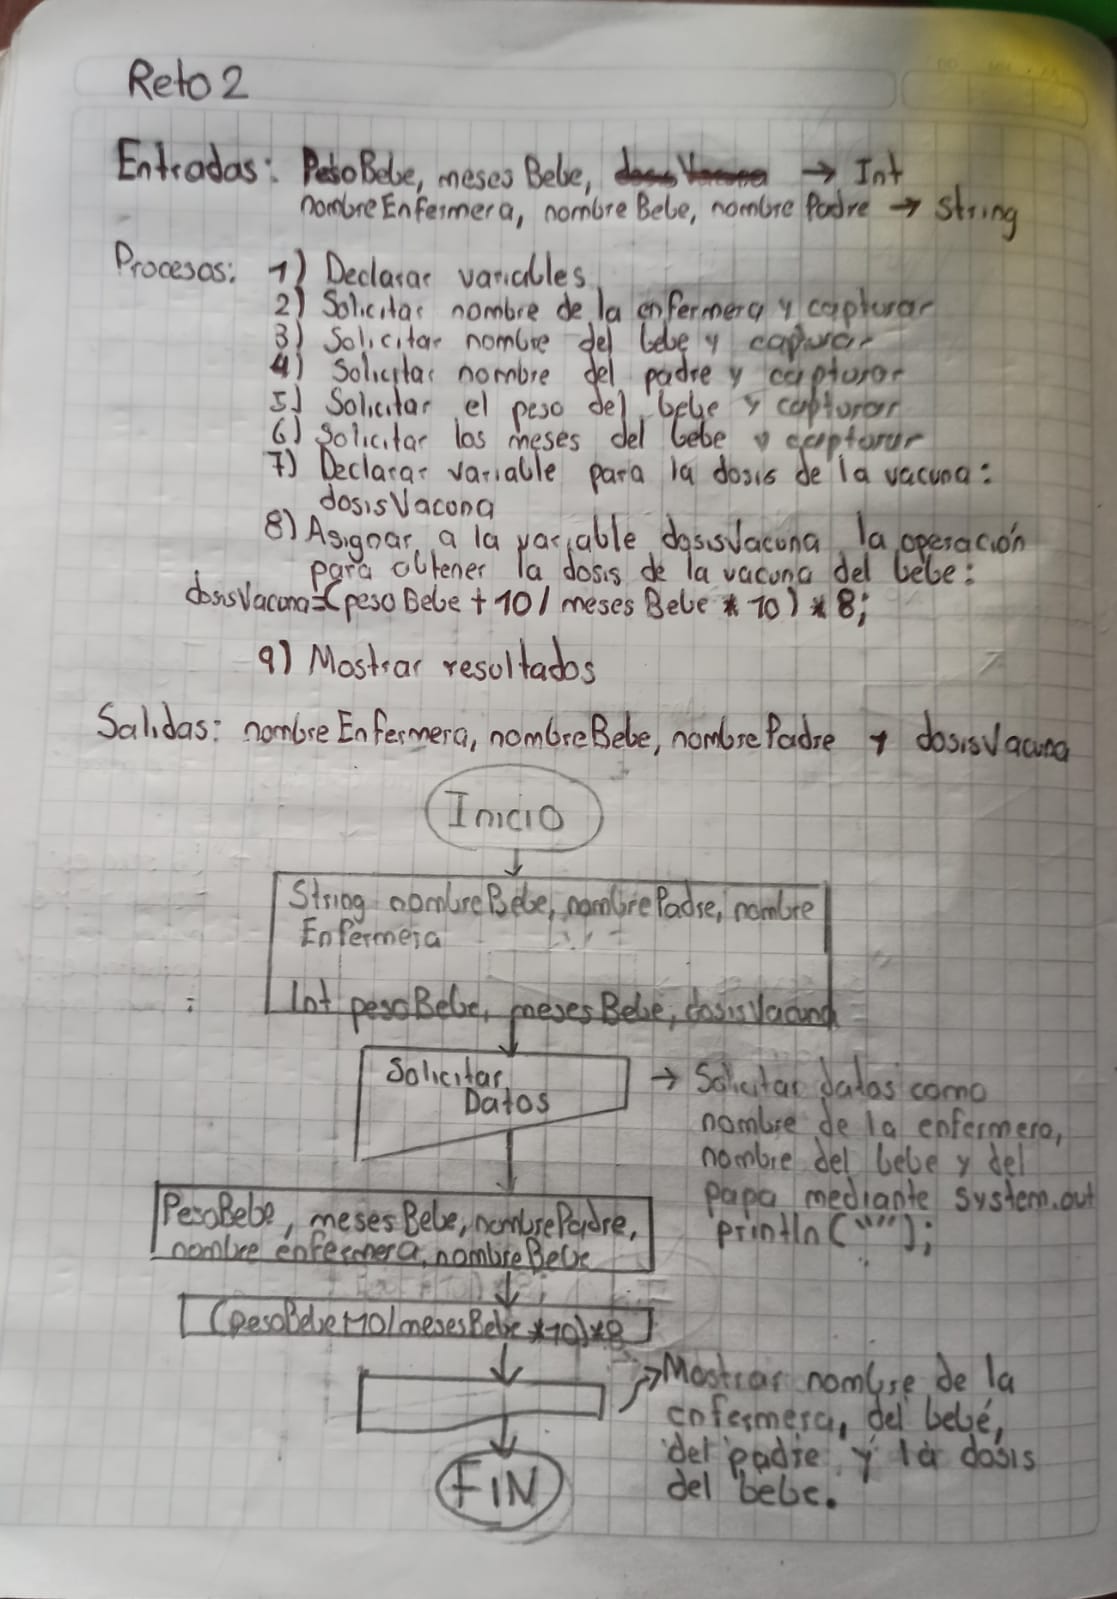 Reto 2
Entradas: PesoBebe, meses Bebe, → Int
nombreEnfermera, nombreBebe, nombre Padre → String
Procesos: 1) Declarar variables
2) Solicitar nombre de la enfermera y capturar
3) Solicitar nombre del bebe y capurar
4) Solicitar nombre del padre y capturar
5) Solicitar el peso del bebe y capturar
6) Solicitar los meses del bebe y capturar
7) Declarar variable para la dosis de la vacuna:
dosisVacuna
8) Asignar a la variable dosisVacuna la operación
para obtener la dosis de la vacuna del bebe:
dosisVacuna=(peso Bebe + 10 / meses Bebe * 10) * 8;
9) Mostrar resultados
Salidas: nombreEnfermera, nombreBebe, nombrePadre y dosisVacuna
Inicio
String nombreBebe, nombrePadre, nombre
Enfermera
Int pesoBebe, mesesBebe, dosisVacuna
Solicitar
Datos
→ Solicitar datos como
nombre de la enfermera,
nombre del bebe y del
papa mediante System.out
println("");
PesoBebe, mesesBebe, nombrePadre,
nombre enfermera, nombreBebe
(pesoBebe+10/mesesBebe*10)*8
Mostrar nombre de la
enfermera, del bebé,
del padre y la dosis
del bebe.
FIN